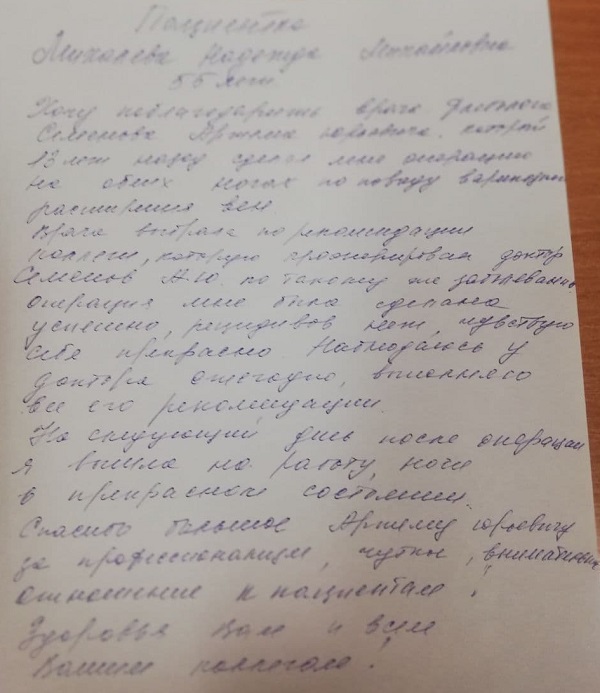 Пациентка
Михалева Надежда Михайловна
55 лет
Хочу поблагодарить врача флеболога
Семенова Артема Юрьевича, который
13 лет назад сделал мне операцию
на обеих ногах по поводу варикозного
расширения вен.
Врача выбрала по рекомендации
коллеги, которую прооперировал доктор
Семенов А.Ю. по такому же заболеванию.
Операция мне была сделана
успешно, рецидивов нет, чувствую
себя прекрасно. Наблюдаюсь у
доктора ежегодно, выполняю
все его рекомендации.
На следующий день после операции
я вышла на работу, ноги
в прекрасном состоянии.
Спасибо большое Артему Юрьевичу
за профессионализм, чуткое, внимательное
отношение к пациентам!
Здоровья Вам и всем
Вашим коллегам!